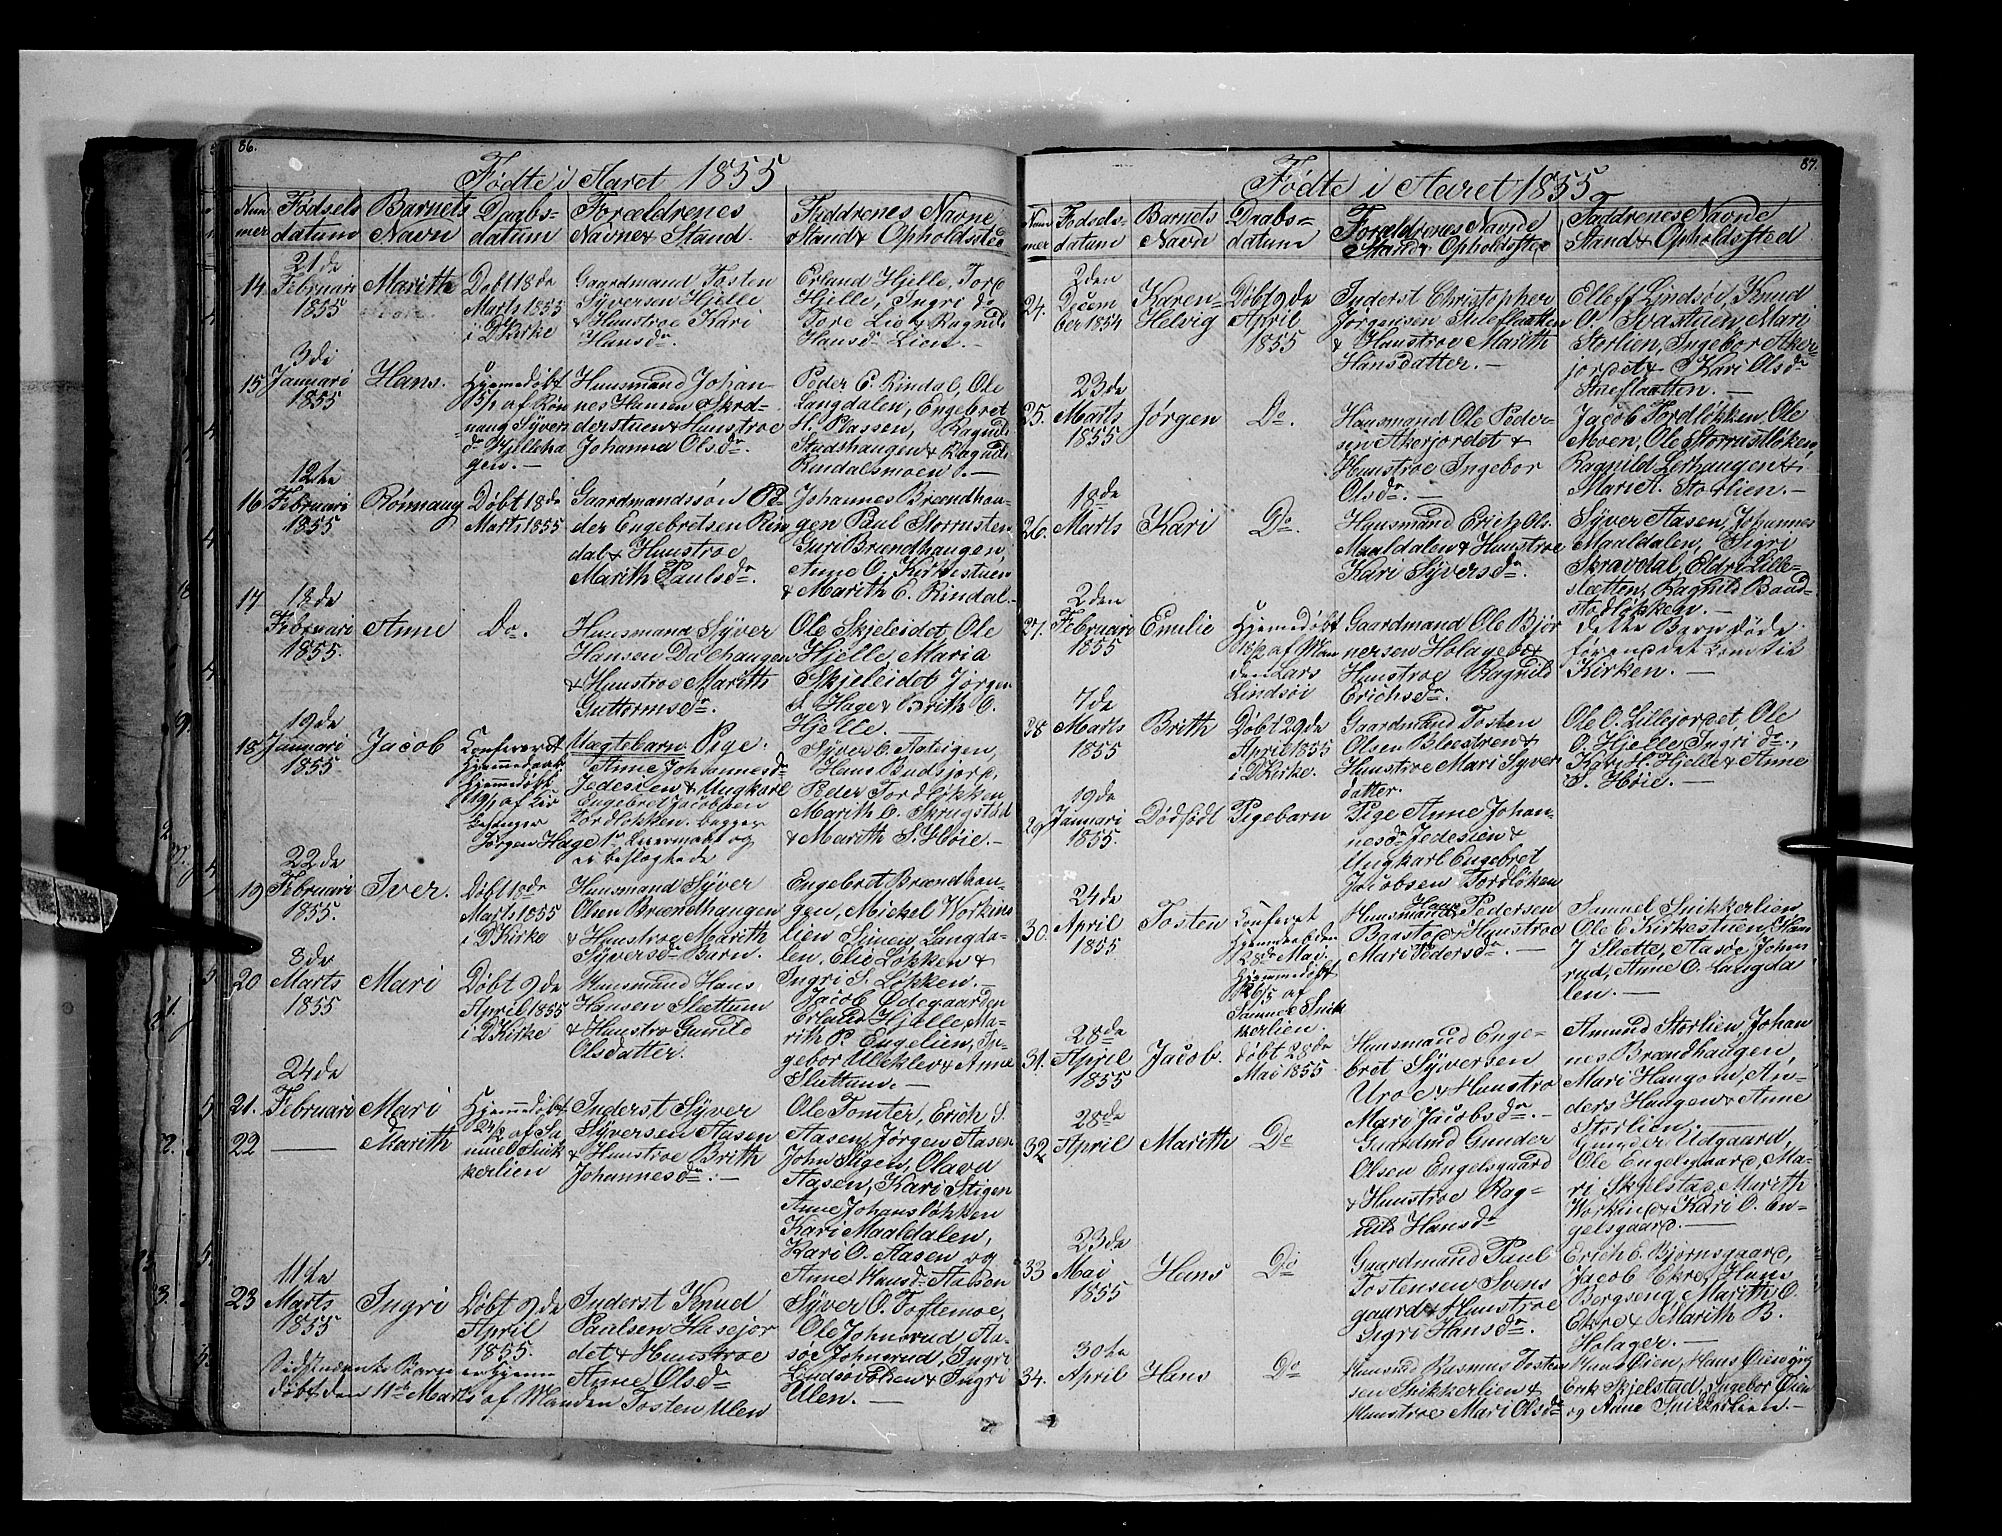 86.
Fødte i Aaret 1855
Num
mer
Fødsels
datum
Barnets
Navn
Daabs-
datum
Forældrenes
Navne & Stand.
Faddrenes Navne
Stand & Opholdssted
14
21de
Februari
1855
Marith
Døbt 18de
Marts 1855
i D Kirke
Gaardmand Tosten
Syversen Hjelle
& Hustroe Kari
Hansdr.
Erland Hjelle, Tore
Hjelle, Ingri do
Tore Lie & Ragnild
Hansdr Lien.—
15
3de
Januari
1855
Hans.
Hjemmedøbt
15/1 af Røn-
naug Syvers
dr Hjelleha
gen.—
Huusmand Johan-
nes Hansen Skred-
derstuen & Hustroe
Johanna Olsdr.
Peder E. Rindal, Ole
Langdalen, Engebret
H. Plassen, Ragnild
Stadshaugen & Ragnild
Rindalsmoen.—
16
12te
Februari
1855
Rønnaug
Døbt 18de
Marts 1855
Gaardmandssøn Pe-
der Engebretsen Rin
dal & Huustroe
Marith Paulsdr.
Johannes Brændhau-
gen Paul Storrusten
Guri Brændhaugen,
Anne O. Kirkestuen
& Marith E. Rindal.—
17
18de
Februari
1855.
Anne
Do.
Huusmand Syver
Hansen Dalhaugen
& Huustroe Marith
Guttormsdr.
Ole Skjeleidet, Ole
Hjelle, Maria
Skjeleidet Jørgen
S. Hage & Brith O.
Hjelle.—
18
19de
Januari
1855
Jacob
Konfereret
Hjemmedaab
Hjemmedøbt
19/1 af Kir
kesanger
Jørgen Hage
Uægtebarn Pige.
Anne Johannesdr
Jedesien & Ungkarl
Engebret Jacobsen
Tordløkken. begges
1ste Leiermaal og
ei beslægtede
Syver O. Aateigen,
Hans Budsjord,
Peder Tordløkken
Marith O. Skrugstad
& Marith S. Høie.—
19
22de
Februari
1855.
Iver.
Døbt 18de
Marts 1855
i D Kirke
Huusmand Syver
Olsen Brændhaugen
& Huustroe Marith
Syversdr Barn.
Engebret Brændhau-
gen, Mickel Workins
lien Simen Langda-
len, Elie Løkken &
Ingri S. Løkken.—
20
8de
Marts
1855
Mari
Døbt 9de
April 1855
i D Kirke
Huusmand Hans
Hansen Slettum
& Huustro Gunild
Olsdatter.
Jacob Ødegaarden
Erland Hjelle, Ma-
rith P. Engelien, In-
gebor Uleklev & Anne
Slettum.—
21.
24de
Februari
Mari
22
—
Marith
Hjemmedøbt
24/2 af Sa-
muel Snik
kerlien
Inderst Syver
Syversen Aasen
& Huustroe Brith
Johannesdr.—
Ole Tomter, Erich S.
Aasen, Jørgen Aasen
John Stigen, Olava
Aasen, Kari Stigen
Anne Johansløkken
Kari Maaldalen,
Kari O. Aasen og
Anne Hansdr Aasen
23
11te
Marts
1855
Ingri
Døbt 9de
April
1855.
Inderst Knud
Paulsen Hasejor
det & Huustroe
Anne Olsdr
Syver O. Toftemoe,
Ole Johnsrud, Aa-
soe Johnsrud, Ingri
Lindsoeløkken & Ingri
Ulen.—
Sidstnævnte Barn er hjemme
døbt den 11te Marts af Manden Tosten Ulen
87.
Fødte i Aaret 1855
Num
mer
Fødsels-
datum
Barnets
Navn
Daabs-
datum
Forældrenes Navne
Stand & Opholdssted
Faddrenes Navne
Stand & Opholdssted
24.
2den
Decem
ber 1854
Karen-
Helvig
Døbt 9de
April
1855
Inderst Christopher
Jørgensen Stueflaatten
& Huustroe Marith
Hansdatter.—
Elleff Lindsøi, Knud
O. Svastuen, Mari
Storlien, Ingebor Aker-
jordet & Kari Olsdr
Stueflaatten.—
25.
23de
Marts
1855
Jørgen
Do.
Huusmand Ole Peder-
sen Akerjordet &
Huustroe Ingebor
Olsdr.—
Jacob Tordløkken, Ole
Moen, Ole Storrustløken,
Ragnild Lerhaugen &
Mari A. Storlien.—
26.
18de
Marts
Kari
Do.
Huusmand Erich Ols.
Maaldalen & Huustroe
Kari Syversdr.
Syver Aasen, Johannes
Maaldalen, Sigri
Skravdal, Eldri Lille-
sletten, Ragnild Baad-
stadløkken.—
27.
2den
Februari
1855
Emilie
Hjemmedøbt
15/2 af Man
den Lars
Lindsøi
Gaardmand Ole Bjør
nersen Holager &
Huustroe Ragnild
Erichsdr.
dette Barn døde
forend det kom til
Kirken.—
28
7de
Marts
1855
Brith
Døbt 29de
April 1855
i D Kirke.
Gaardmand Tosten
Olsen Bleestren &
Huustroe Mari Syver
datter.
Ole O. Lillejordet, Ole
O. Hjelle, Ingri do.,
Kari H. Hjelle & Anne
S. Høie.—
29
19de
Januari
1855.
Dødfødt
Pigebarn
Pige Anne Johan-
nesdr Jedesien &
Ungkarl Engebret
Jacobsen Tordløken
30.
24de
April
1855
Tosten
Konfereret
Hjemmedaaben
28de Mai.
Hjemmedøbt
26/5 af
Samuel Snik
kerlien.
Huusmand Hans Pedersen
Baastad & Huustroe
Mari Pedersdr.—
Samuel Snikkerlien
Ole C Kirkestuen, Hans
J Slette, Aasoe John-
rud, Anne O. Langda
len.—
31.
28de
April
1855
Jacob.
døbt 28de
Mai 1855
Huusmand Enge-
bret Syversen
Uroe & Huustroe
Mari Jacobsdr.—
Amund Storlien, Johan
nes Brændhaugen,
Mari Haugom, An-
ders Haugen & Anne
Storlien.—
32
28de
April
Marith
Do
Guardmd Gunder
Olsen Engelsgaard
& Huustroe Rag-
nild Hansdr
Gunder Udgaard,
Ole Engelsgaard, Ma-
ri Skjelstad, Marith
Workind & Kari O. En-
gelsgaard.—
33
23de
Mai
1855
Hans
Do
Gaardmand Paul
Tostensen Svens
gaard & Huustroe
Sigri Hansdr.
Erich E. Bjørnsgaard,
Jacob Ekre, Hans
Bergseng, Marith O.
Ekre & Marith B.
Holager.—
34.
30te
April
Hans
Do
Huusmd Rasmus Tosten
sen Snikkerlien &
Huustroe Mari Olsdr
Hans Øien, Hans Øien yng
Erik Skjelstad, Ingebor Øien
og Anne Snikkerlien.—